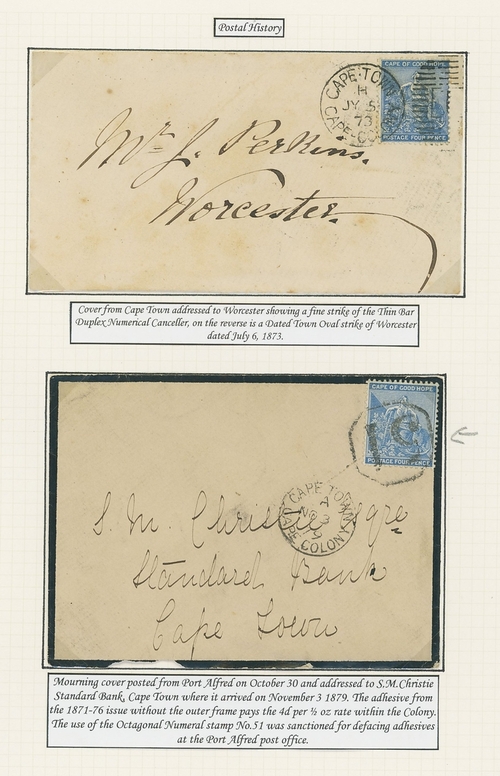 Postal History
CAPE OF GOOD HOPE
POSTAGE FOUR PENCE
CAPE·TOWN
H
JY 5
73
CAPE-COLONY
Mr J. Perkins.
Worcester.
Cover from Cape Town addressed to Worcester showing a fine strike of the Thin Bar
Duplex Numerical Canceller, on the reverse is a Dated Town Oval strike of Worcester
dated July 6, 1873.
CAPE OF GOOD HOPE
POSTAGE FOUR PENCE
51
CAPE TOWN
A
NO 3
79
CAPE COLONY
S. M. Christie Esqre
Standard Bank
Cape Town
Mourning cover posted from Port Alfred on October 30 and addressed to S.M.Christie
Standard Bank, Cape Town where it arrived on November 3 1879. The adhesive from
the 1871-76 issue without the outer frame pays the 4d per ½ oz rate within the Colony.
The use of the Octagonal Numeral stamp No.51 was sanctioned for defacing adhesives
at the Port Alfred post office.